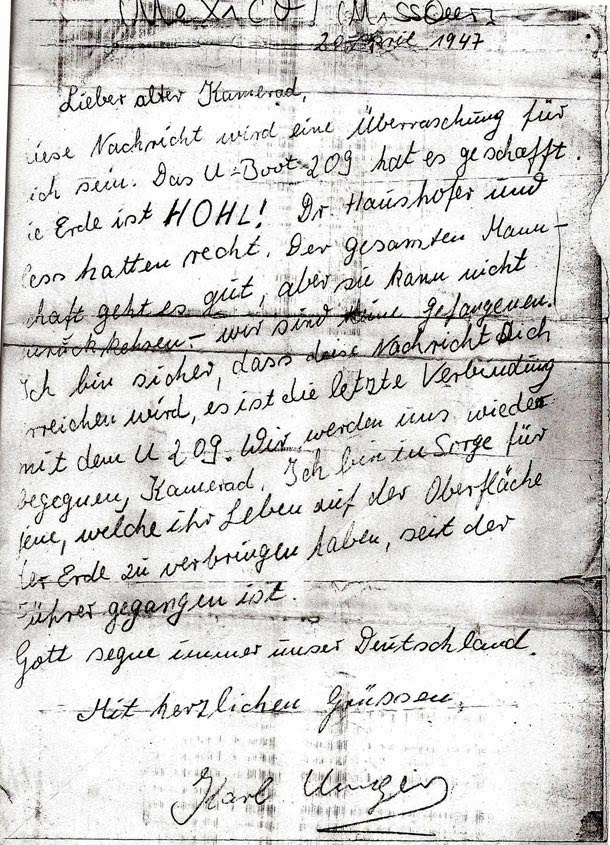 (Mexico) (Missouri)
20. April 1947
Lieber alter Kamerad,
iese Nachricht wird eine Überraschung für
ich sein. Das U-Boot 209 hat es geschafft.
ie Erde ist HOHL! Dr. Haushofer und
ess hatten recht. Der gesamten Mann-
chaft geht es gut, aber sie kann nicht
zurückkehren – wir sind keine Gefangenen.
Ich bin sicher, dass diese Nachricht Dich
rreichen wird, es ist die letzte Verbindung
mit dem U 209. Wir werden uns wieder
begegnen, Kamerad. Ich bin in Sorge für
jene, welche ihr Leben auf der Oberfläche
der Erde zu verbringen haben, seit der
Führer gegangen ist.
Gott segne immer unser Deutschland.
Mit herzlichen Grüssen,
Karl Unger